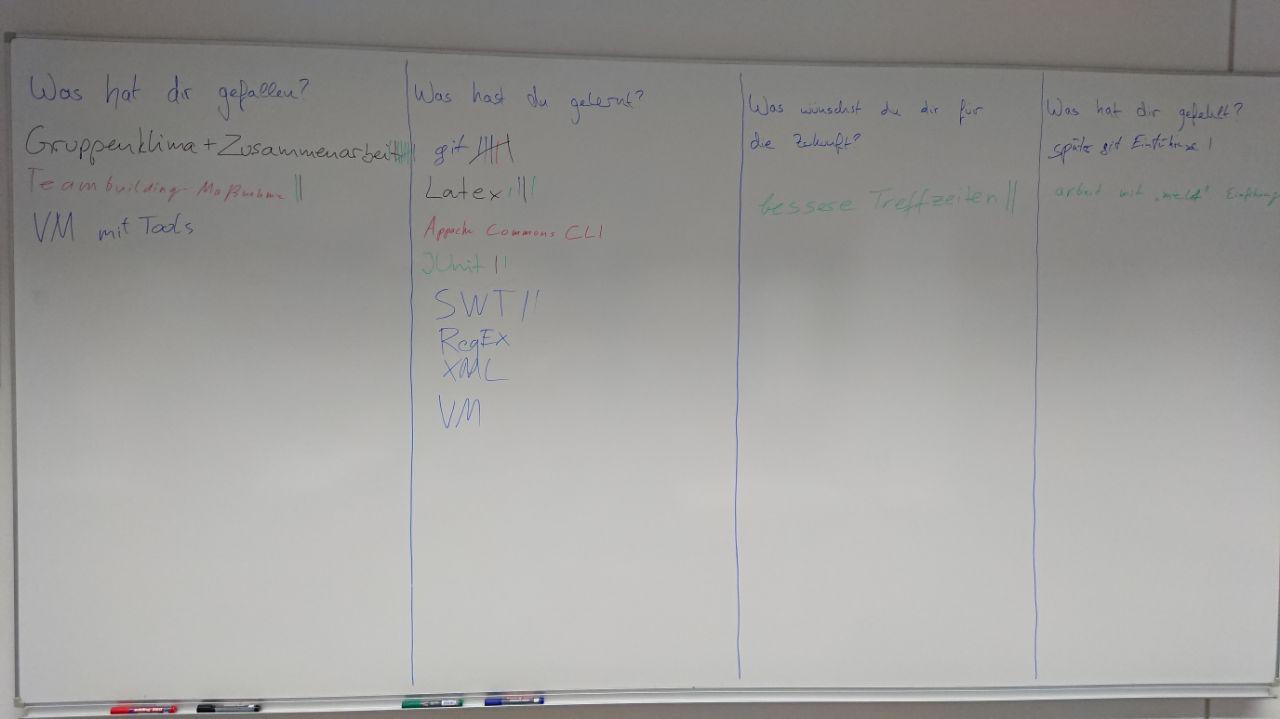 Was hat dir gefallen?
Gruppenklima + Zusammenarbeit
Teambuilding-Maßnahme ||
VM mit Tools
Was hast du gelernt?
git
Latex
Appache Commons CLI
JUnit ||
SWT //
RegEx
XML
VM
Was wünschst du dir für
die Zukunft?
bessere Treffzeiten ||
Was hat dir gefehlt?
späte git Einführung |
arbeit mit Einführung